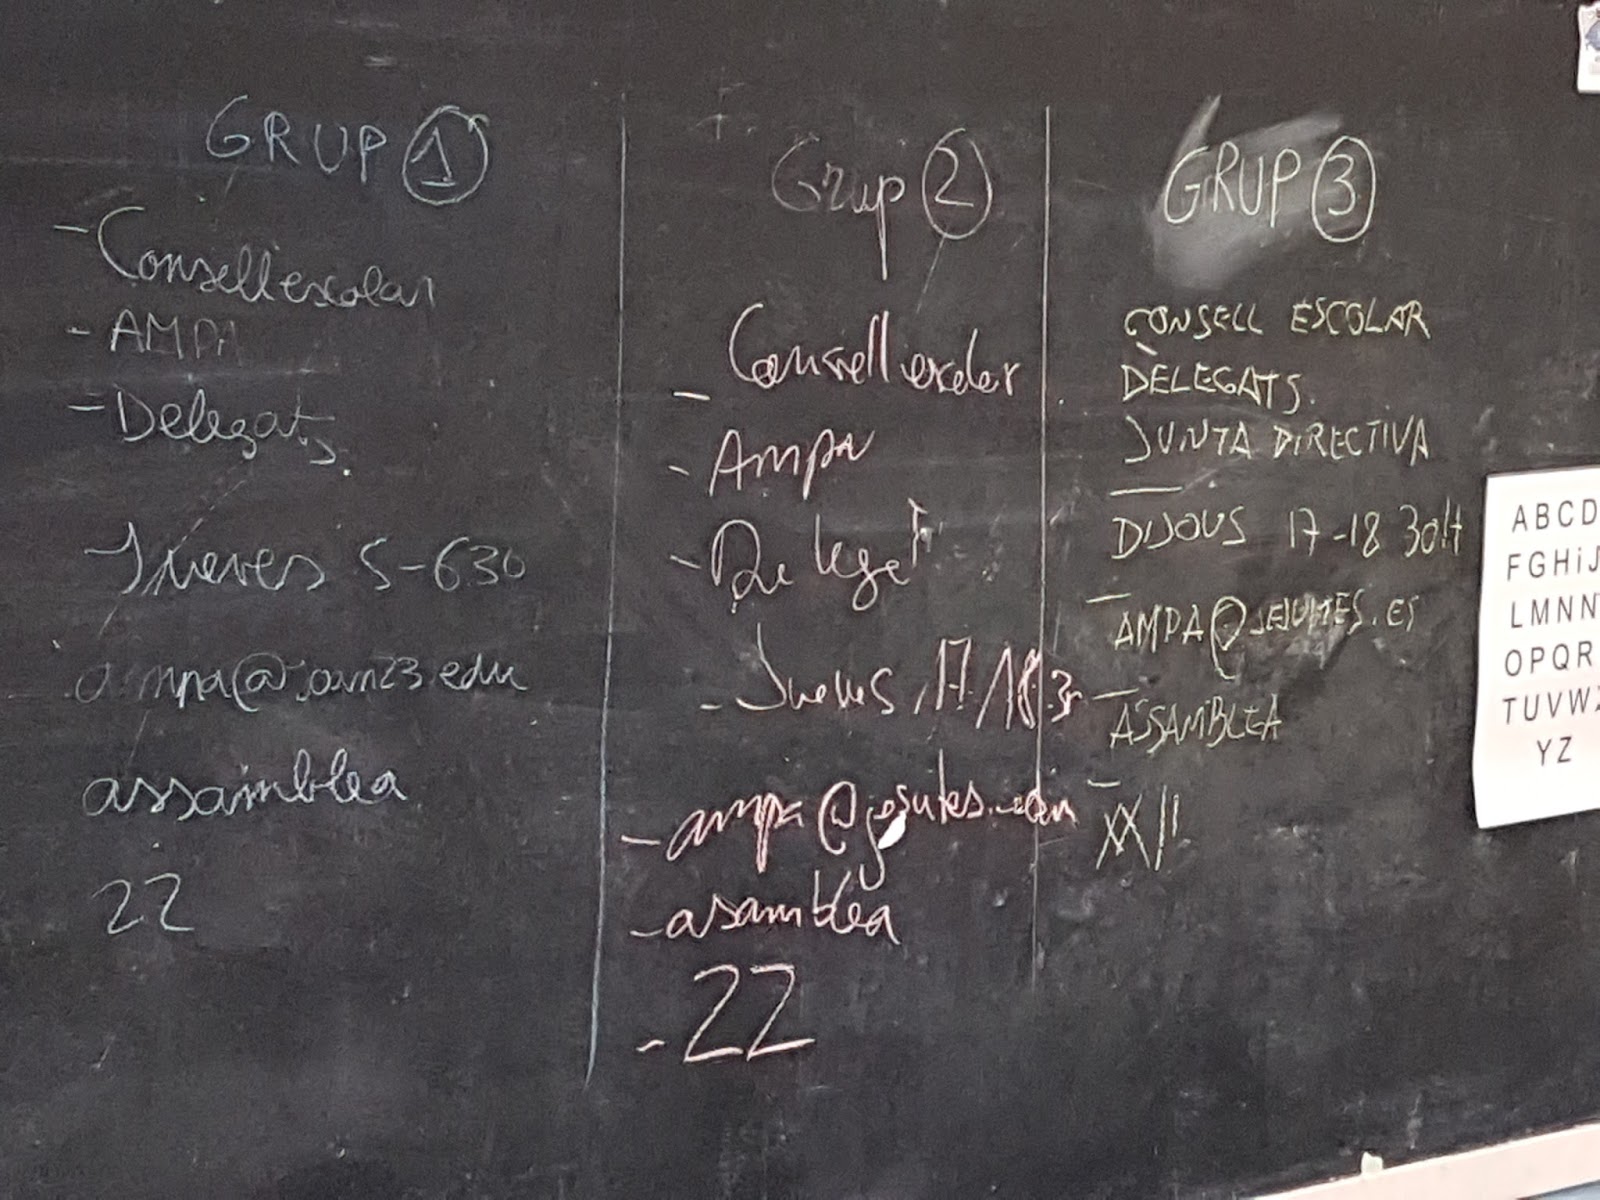 GRUP 1
- Consell escolar
- AMPA
- Delegats.
Jueves 5-630
ampa@joan23.edu
assamblea
22
Grup 2
- Consell escolar
- Ampa
- Delegat
- Jueves, 17/18.3
- ampa@jesuites.edu
- asamblea
- 22
GRUP 3
CONSELL ESCOLAR
DELEGATS.
JUNTA DIRECTIVA
DIJOUS 17-18 30H
AMPA@JESUITES.ES
ASSAMBLEA
XXII
ABCD
FGHiJ
LMNN
OPQR
TUVW
YZ